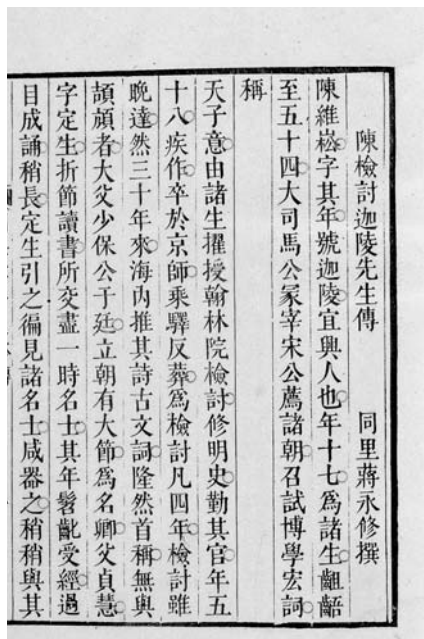 陳檢討迦陵先生傳 同里蔣永修撰
陳維崧字其年號迦陵宜興人也年十七爲諸生齟齬
至五十四大司馬公冢宰宋公薦諸朝召試博學宏詞
稱
天子意由諸生擢授翰林院檢討修明史勤其官年五
十八疾作卒於京師乘驛反葬爲檢討凡四年檢討雖
晚達然三十年來海內推其詩古文詞隆然首稱無與
頡頏者大父少保公于廷立朝有大節爲名卿父貞慧
字定生折節讀書所交盡一時名士其年髫齔受經過
目成誦稍長定生引之徧見諸名士咸器之稍稍與其